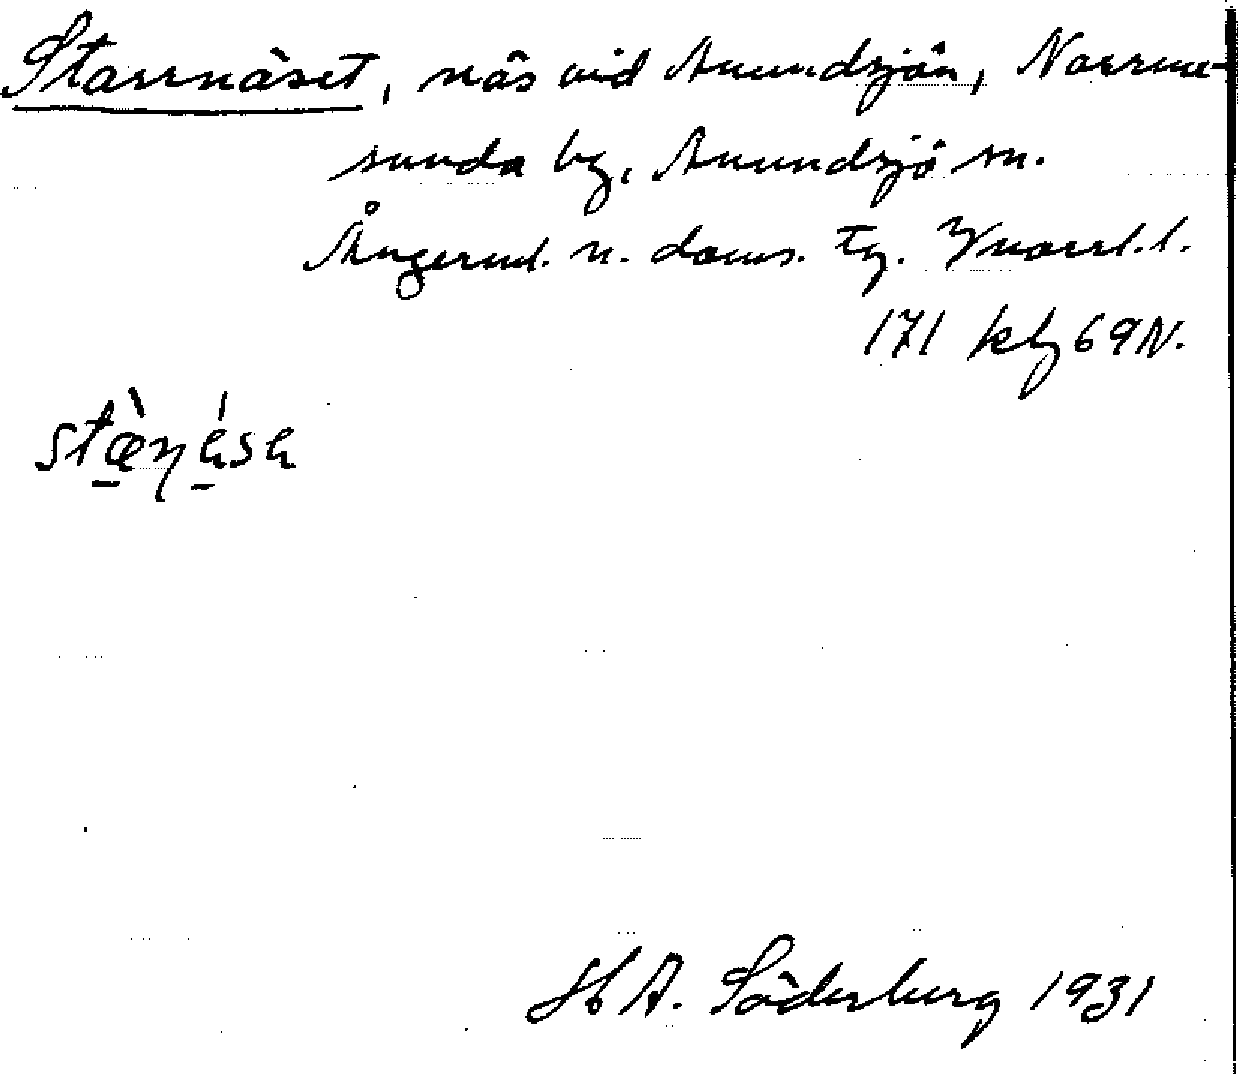 Starrnäset, näs vid Anundsjön, Norrme-
sunda by, Anundsjö sn.
Ångerml. n. doms. tg. Vnorrl. l.
171 kbl 69 N.
stæ̀ŋáse
H A. Söderberg 1931